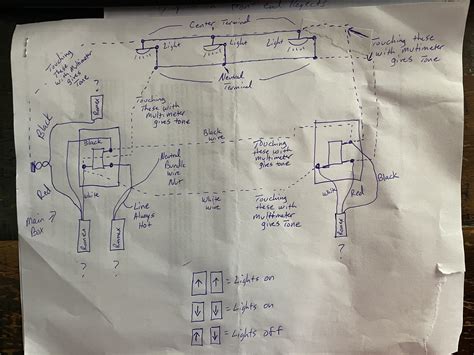 Center Terminal
Light
Light
Light
Neutral
Terminal
Touching
these
with
Multimeter
gives
Tone
Touching these
with multimeter
gives tone
Touching
These with
multimeter
gives tone
Black
wire
Touching
these with
multimeter
gives tone
Black
Romex
Black
Red
Main
Box
White
Neutral
Bundle
wire
Nut
Line
Always
Hot
White
wire
Touching
these with
multimeter
gives Tone
White
Red
Black
Romex
Romex
Romex
?
?
?
↑ ↑ = Lights on
↓ ↓ = Lights on
↑ ↓ = Lights off